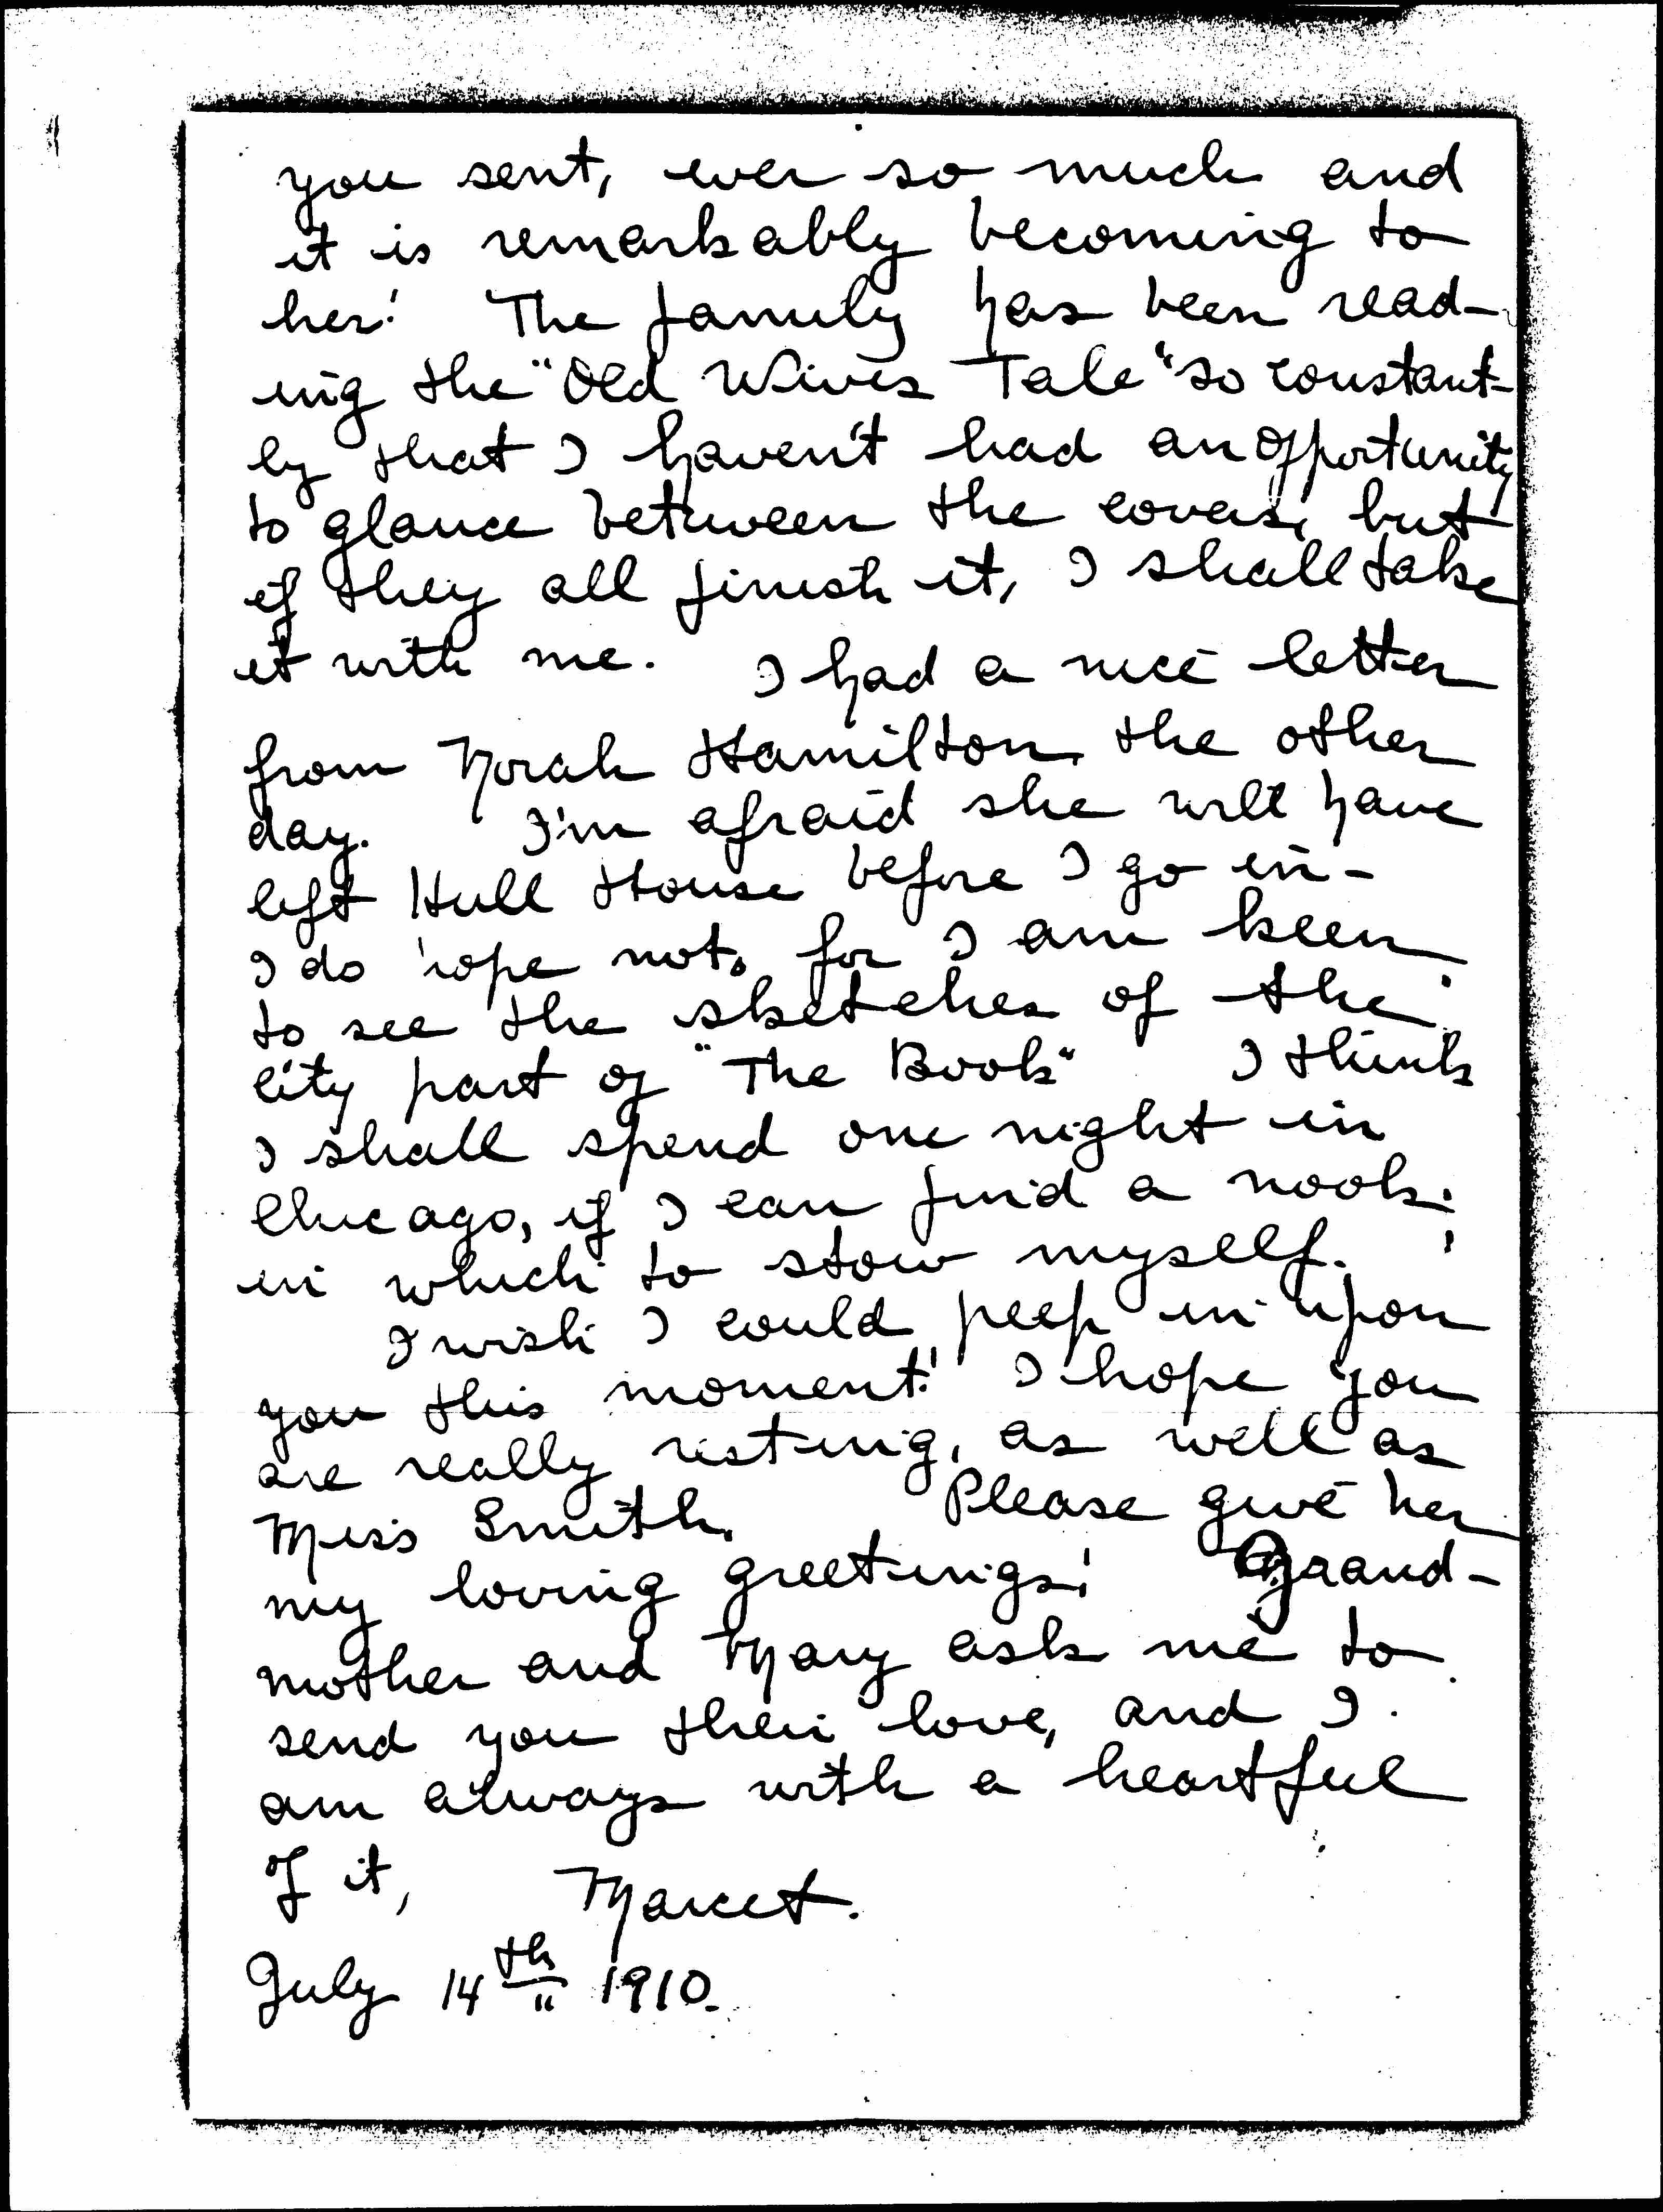 you sent, ever so much and
it is remarkably becoming to
her! The family has been read-
ing the "Old Wives Tale" so constant-
ly that I haven't had an opportunity
to glance between the covers, but
if they all finish it, I shall take
it with me. I had a nice letter
from Norah Hamilton the other
day. I'm afraid she will have
left Hull House before I go in-
I do hope not, for I am keen
to see the sketches of the
city part of "The Book" I think
I shall spend one night in
Chicago, if I can find a nook
in which to stow myself.
I wish I could peep in upon
you this moment! I hope you
are really resting, as well as
Miss Smith. Please give her
my loving greetings! Grand-
mother and Mary ask me to
send you their love, and I
am always with a heartful
of it, Marcet.
July 14th 1910.